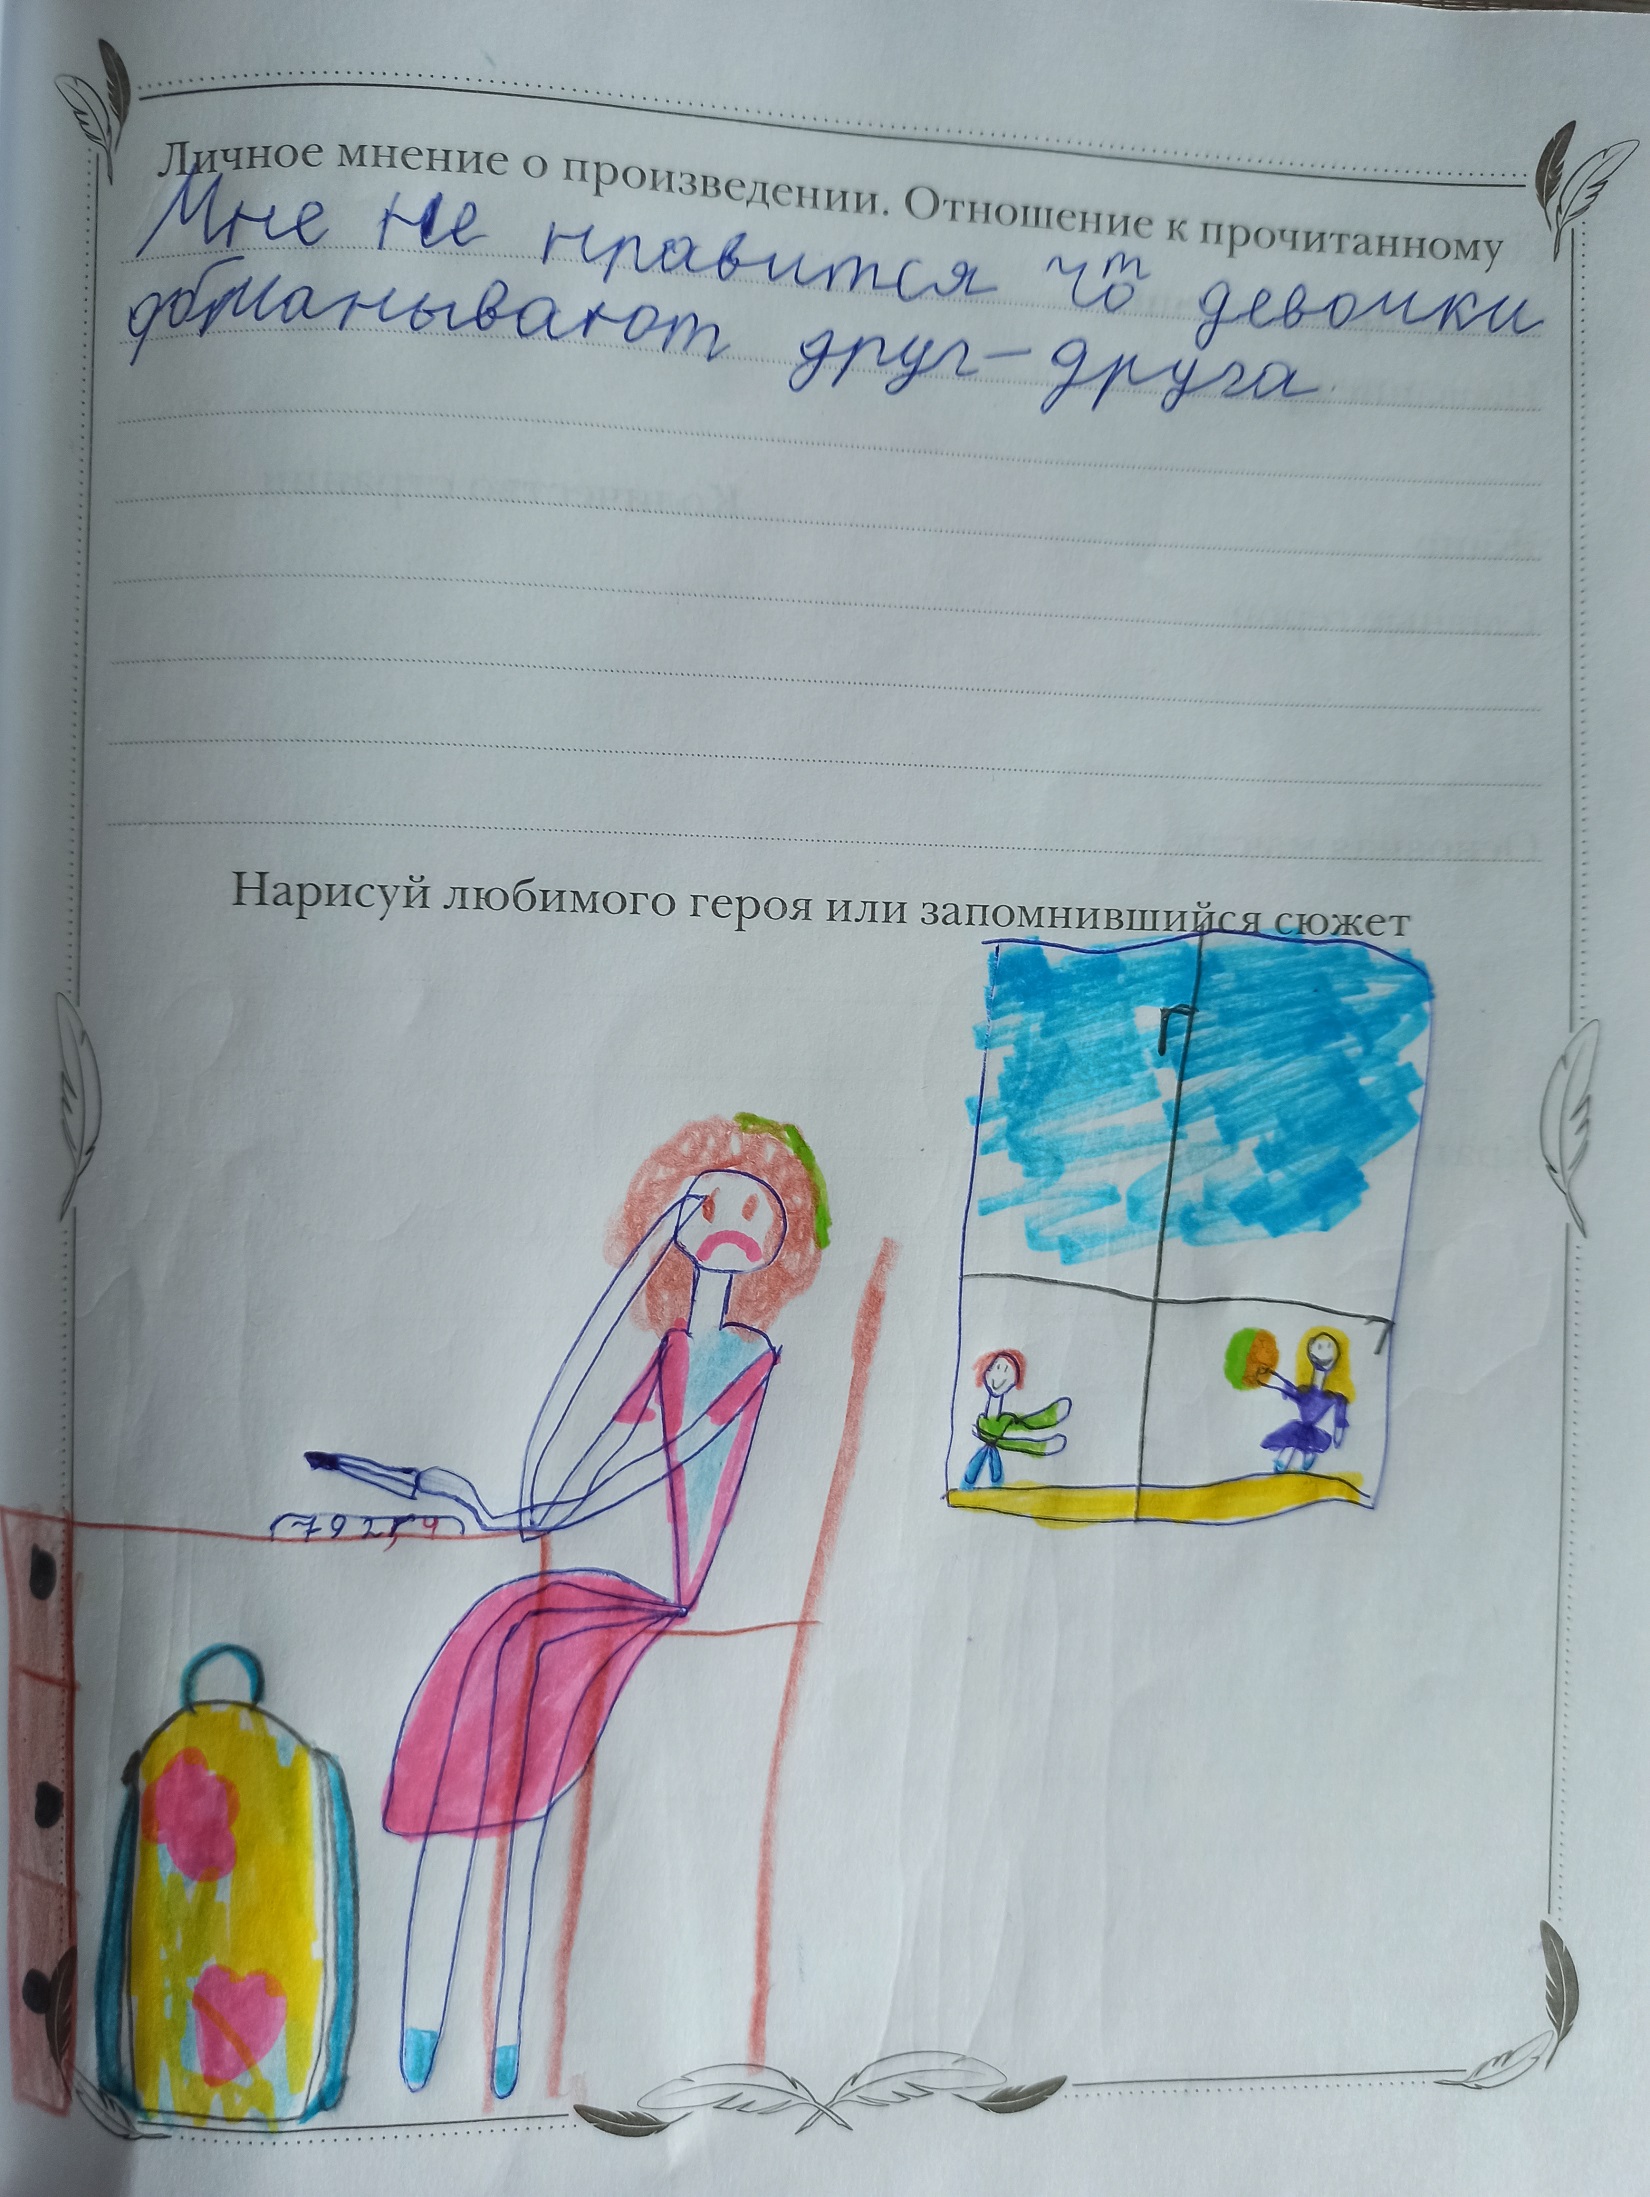 Личное мнение о произведении. Отношение к прочитанному
Мне не нравится что девочки
обманывают друг-друга
Нарисуй любимого героя или запомнившийся сюжет